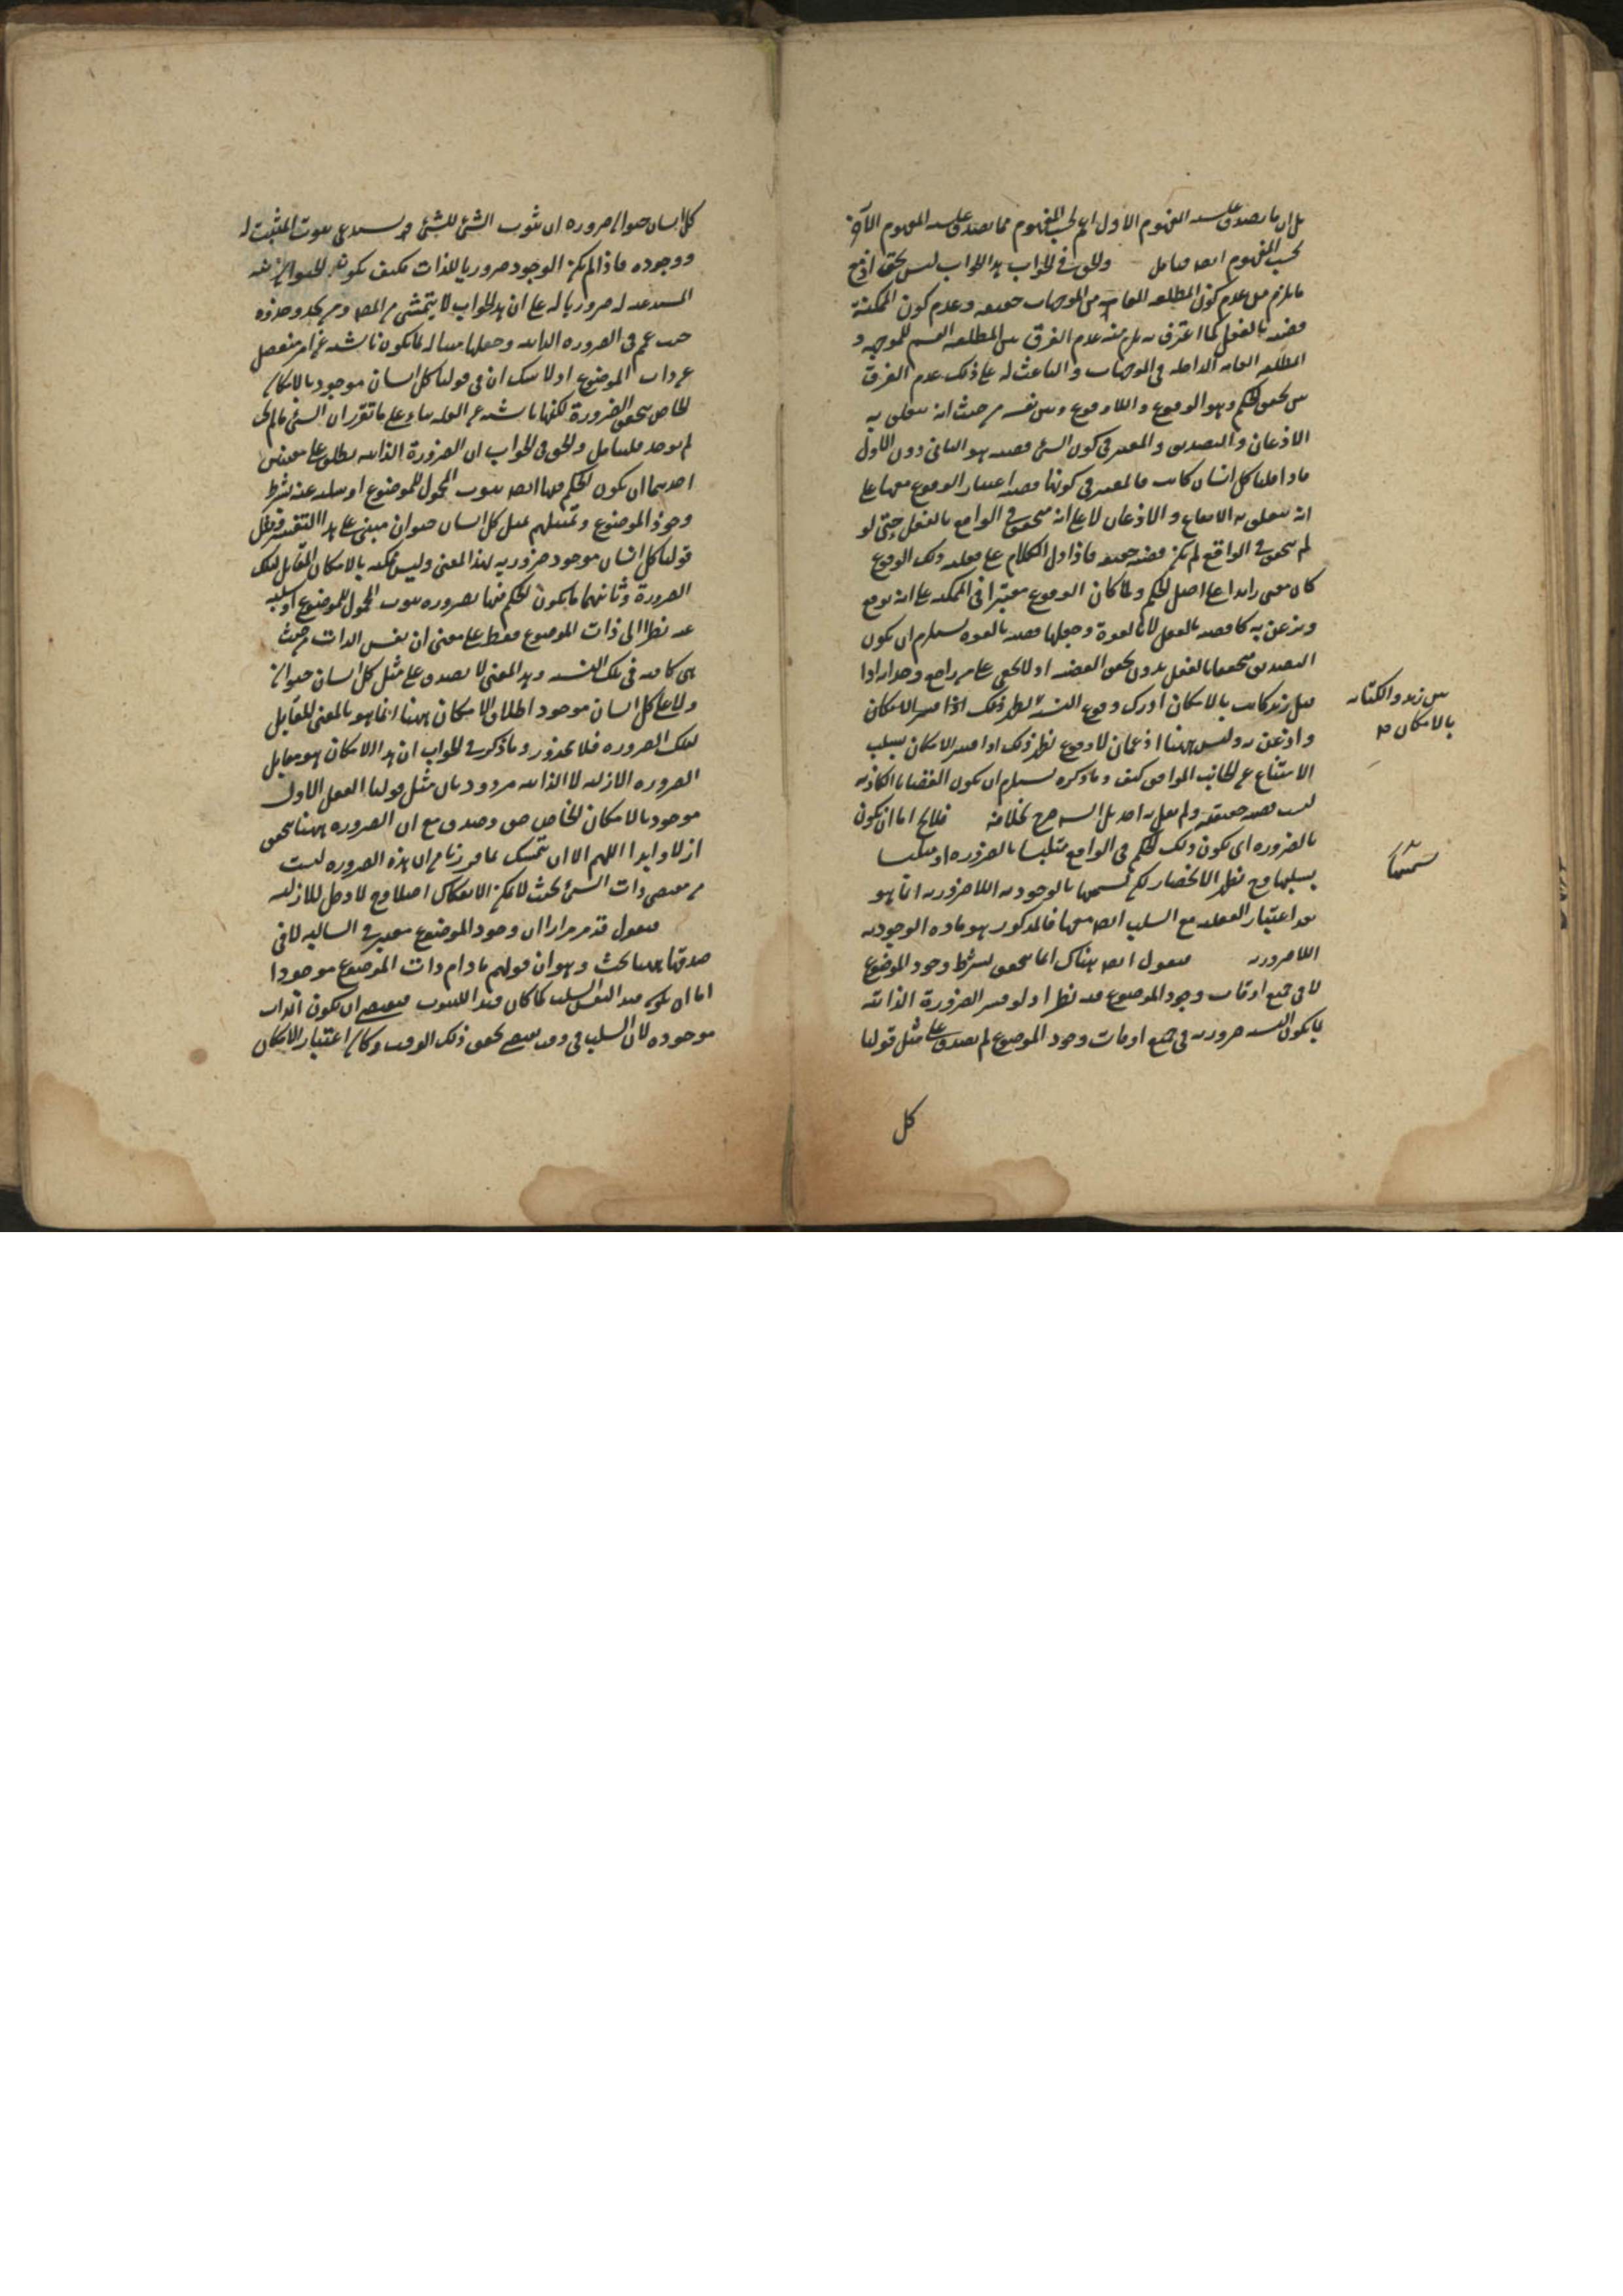 بل ان ما يصدق عليه المفهوم الاول اعم بحسب المفهوم مما يصدق عليه المفهوم الآخر
بحسب المفهوم ايضا فتامل والحق في الجواب هذا الجواب ليس بحق اذ مع
ما يلزم من عدم كون المطلقه العامة من الموجهات حقيقه وعدم كون الممكنة
قضيه بالفعل كما اعترف به يلزم منه عدم الفرق بين المطلقه القسم للموجهه و
المطلقه العامه الداخله في الموجهات والباعث له على ذلك عدم الفرق
بين تحقق الحكم وهو الوقوع واللاوقوع وبين نفسه من حيث انه يتعلق به
الاذعان والتصديق والمعتبر في كون الشئ قضيه هو الثاني دون الاول
فاذا قلنا كل انسان كاتب فالمعتبر في كونها قضيه اعتبار الوقوع فيها على
انه يتعلق به الايقاع والاذعان لا على انه متحقق في الواقع بالفعل حتى لو
لم يتحقق في الواقع لم يكن قضيه حقيقه فاذا دل الكلام على فعليه ذلك الوقوع
كان معنى زايدا على اصل الحكم ولما كان الوقوع معتبرا في الممكنه على انه يوقع
ويذعن به كا قضيه بالفعل لا بالقوة وجعلها قضيه بالقوه يستلزم ان يكون
التصديق متحققا بالفعل بدون تحقق القضيه اذ لا يخفى على من راجع وجدانه اذا
قيل زيد كاتب بالامكان ادرك وقوع النسبة بطريق ذلك اذا فسر الامكان
بين زيد والكتابه
بالامكان صح
واذعن به وليس ههنا اذعان لا وقوع نظير ذلك اذا فسر الامكان بسلب
الامتناع عن الجانب الموافق كيف وما ذكره يستلزم ان يكون القضايا الكاذبه
ليست قضيه حقيقه ولم يقل به احد بل السيد صرح بخلافه فلا يخ اما ان يكون
بالضروره اى يكون ذلك الحكم في الواقع متلبسا بالضروره او متلبسا
بسلبها وح يظهر الانحصار لكن تسميتها بالوجوديه اللاضروريه انما هو
تسميتها
بعد اعتبار الفعليه مع السلب ايضا فيها فالمذكور هو ماده الوجوديه
اللاضروريه فنقول ايضا هناك انما يتحقق بشرط وجود الموضوع
لا في جميع اوقات وجود الموضوع فيه نظر اذ لو فسر الضرورة الذاتيه
بما يكون النسبه ضروريه في جميع اوقات وجود الموضوع لم يصدق على مثل قولنا
كل
كل انسان حيوان ضروره ان ثبوت الشئ للشئ فرع يستدعى ثبوت المثبت له
ووجوده فاذا لم يكن الوجود ضروريا للذات فكيف يكون الحيوانيه
المستدعيه له ضروريا له على ان هذا الجواب لا يتمشى من المصه ومن يحذو حذوه
حيث عمم في الضروره الذاتيه وجعلها مساله لما يكون ناشيه عن امر منفصل
عن ذات الموضوع اذ لا شك ان في قولنا كل انسان موجود بالامكان
الخاص يتحقق الضرورة لكنها ناشيه عن العله بناء على ما تقرر ان الشئ ما لم يجب
لم يوجد فليتامل والحق في الجواب ان الضرورة الذاتيه يطلق على معنيين
احدهما ان يكون الحكم فيها ايضا بثبوت المحمول للموضوع او سلبه عنه بشرط
وجود الموضوع وتمثيلهم بمثل كل انسان حيوان مبنى على هذا التفسير فمثل
قولنا كل انسان موجود ضروريه بهذا المعنى وليس ممكنه بالامكان المقابل لتلك
الضرورة وثانيهما ما يكون الحكم فيها بضروره ثبوت المحول للموضوع او سلبه
عنه نظرا الى ذات الموضوع فقط على معنى ان نفس الذات من حيث
هى كافيه في تلك النسبه وهذا المعنى لا يصدق على مثل كل انسان حيوان
ولا على كل انسان موجود اطلاق الامكان ههنا انما هو بالمعنى المقابل
لتلك الضروره فلا محذور وما ذكره في الجواب ان هذا الامكان هو مقابل
الضروره الازليه لا الذاتيه مردود بان مثل قولنا العقل الاول
موجود بالامكان الخاص حق وصدق مع ان الضروره ههنا يتحقق
ازلا وابدا اللهم الا ان يتمسك بما قررنا من ان هذه الضروره ليست
من مقتضى ذات الشئ بحيث لا يمكن الانفكاك اصلا وح لا دخل للازليه
فنقول قد مر مرارا ان وجود الموضوع معتبر في السالبه لا في
صدقها ههنا بحث وهو ان قولهم ما دام ذات الموضوع موجودا
اما ان يكون قيد النفى السلب كما كان قيدا للثبوت فيقتضى ان يكون الذات
موجوده لان السلب في وقت يقتضى تحقق ذلك الوقت وكان اعتبار الامكان